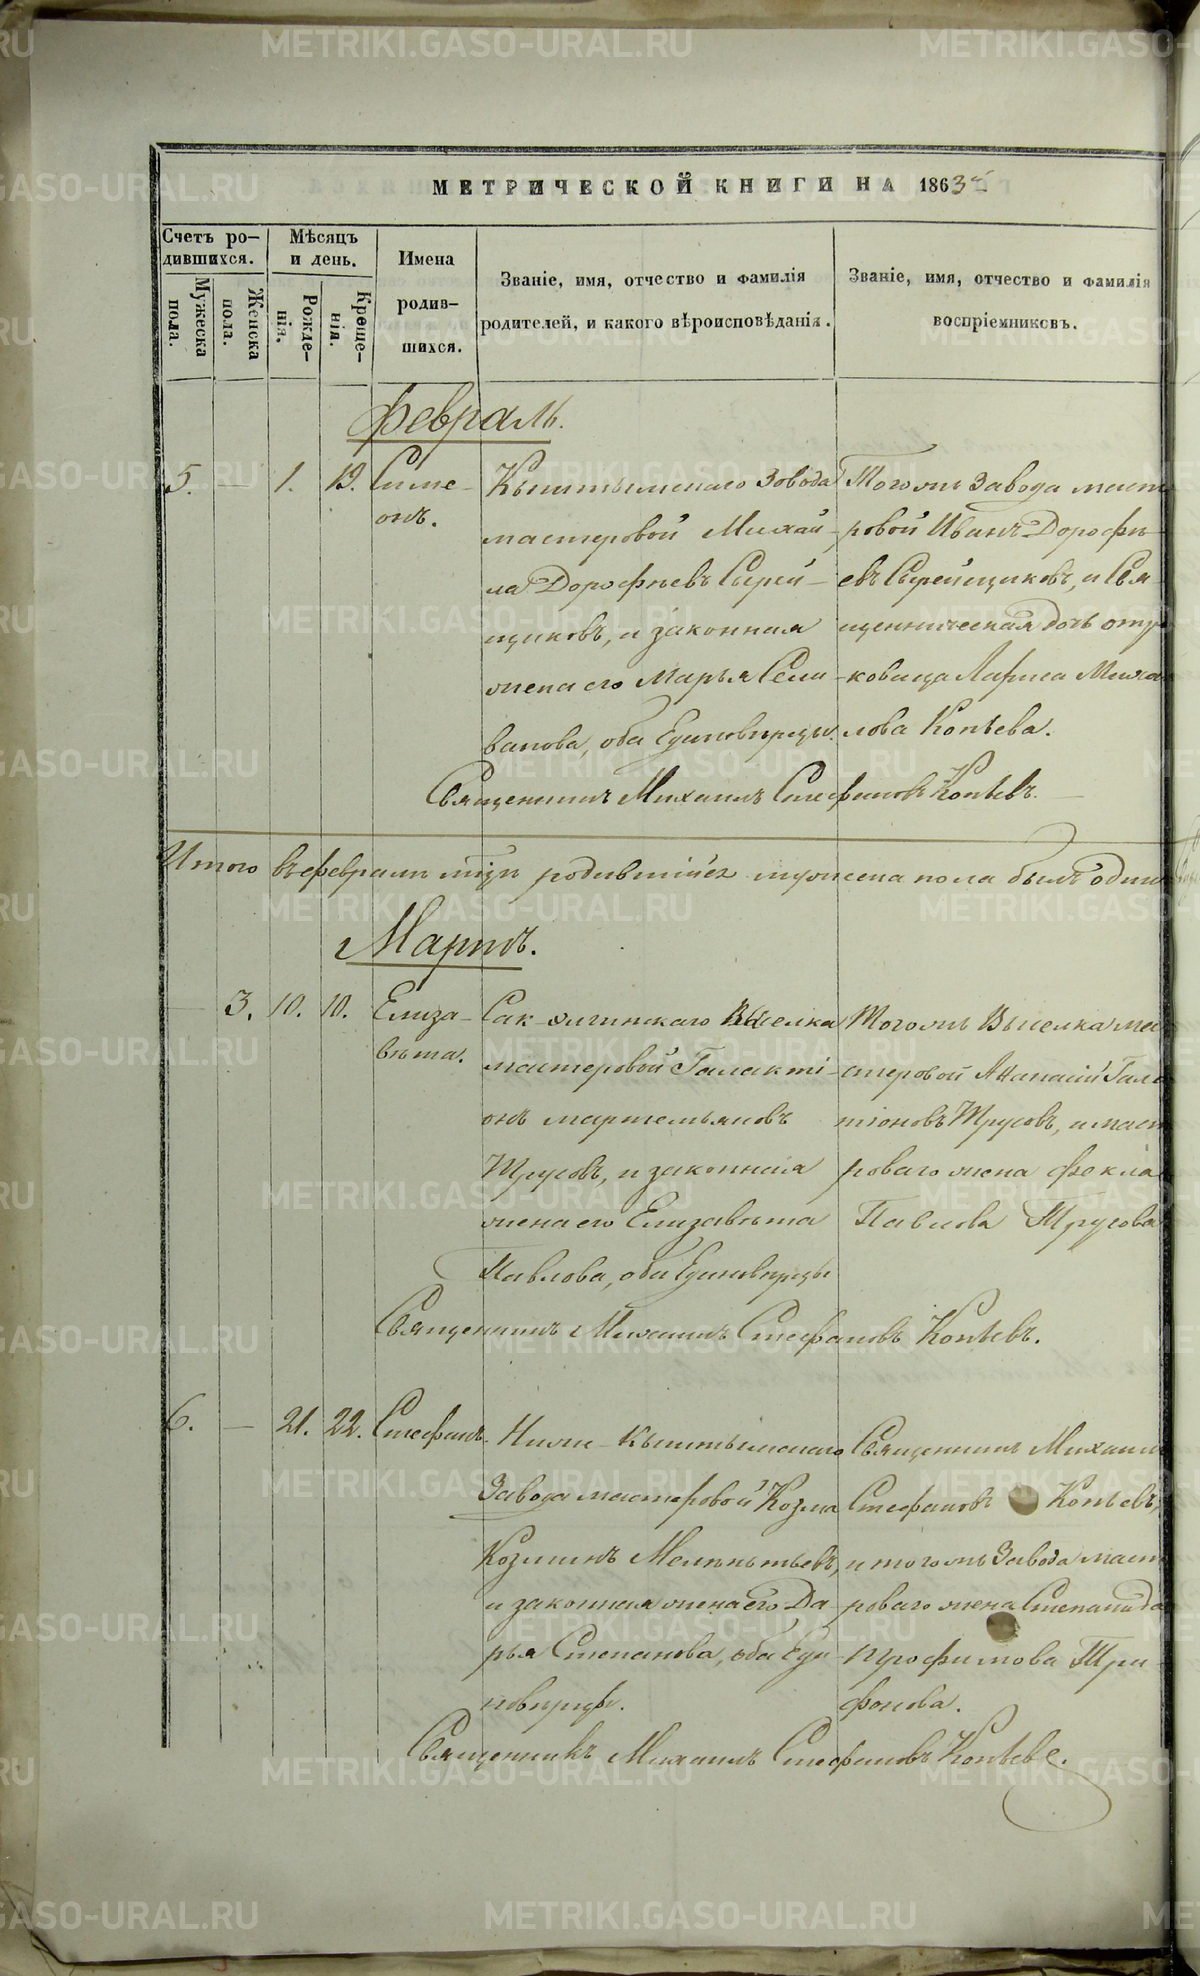 МЕТРИЧЕСКОЙ КНИГИ НА 1863
Счетъ ро-
дившихся.
Мѣсяцъ
и день.
Имена
родив-
шихся.
Званіе, имя, отчество и фамилія
родителей, и какого вѣроисповѣданія.
Званіе, имя, отчество и фамилія
воспріемниковъ.
Мужеска
пола.
Женска
пола.
Рожде-
нія.
Креще-
нія.
Февраль.
5. — 1. 19. Симе-
онъ.
Кыштымскаго Завода
мастеровой Михай-
ла Дорофѣевъ Сырей-
щиковъ, и законная
жена его Марья Сели-
ванова, оба Единовѣрцы.
Тогожъ Завода маст
ровой Иванъ Дорофѣ-
евъ Сырейщиковъ, и Свя
щенническая дочь отро
ковица Лариса Миха
лова Копѣева.
Священникъ Михаилъ Стефановъ Копѣевъ.
Итого въ февралѣ мцѣ родившійся мужеска пола былъ один
Мартъ.
— 3. 10. 10. Елиза-
вѣта.
Сак-элгинскаго Выселка
мастеровой Галакті-
онъ мартемьяновъ
Трусовъ, и законная
жена его Елизавѣта
Павлова, оба Единовѣрцы
Тогожъ Выселка ма
стеровой Афанасій Гала
тіоновъ Трусовъ, и маст
роваго жена Фекла
Павлова Трусова
Священникъ Михаилъ Стефановъ Копѣевъ.
6. — 21. 22. Стефанъ.
Ниже-Кыштымскаго
Завода мастеровой Козма
Козминъ Мелентьевъ,
и законная жена его Да-
рья Степанова, оба Еди-
новѣрцы.
Священникъ Михаил
Стефановъ Копѣевъ,
и тогожъ Завода маст
роваго жена Степанида
Трофимова Три
фонова.
Священникъ Михаилъ Стефановъ Копѣевъ.
METRIKI.GASO-URAL.RU